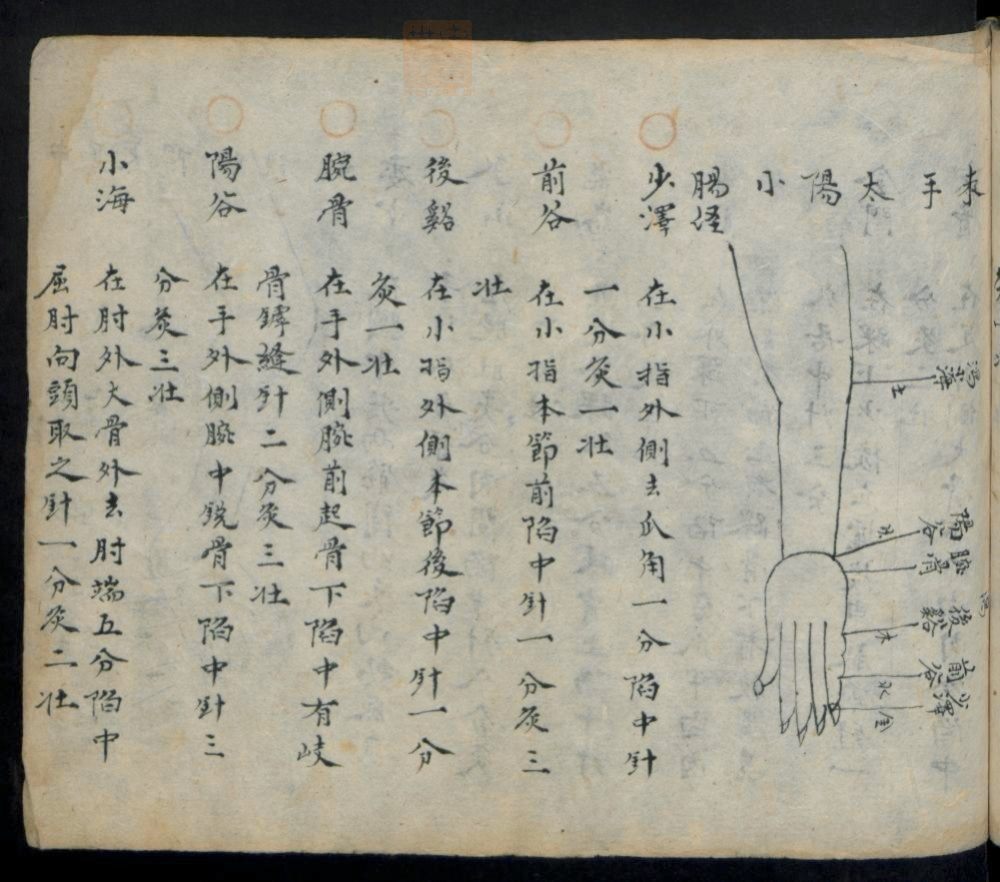 表手太陽小
腸経
小海
土
陽谷
火
腕骨
後谿
木
前谷
水
少澤
金
少澤
在小指外側去爪角一分陷中針
一分灸一壮
前谷
在小指本節前陷中針一分灸三
壮
後谿
在小指外側本節後陷中針一分
灸一壮
腕骨
在手外側腕前起骨下陷中有岐
骨罅縫針二分灸三壮
陽谷
在手外側腕中銳骨下陷中針三
分灸三壮
小海
在肘外大骨外去肘端五分陷中
屈肘向頭取之針一分灸二壮